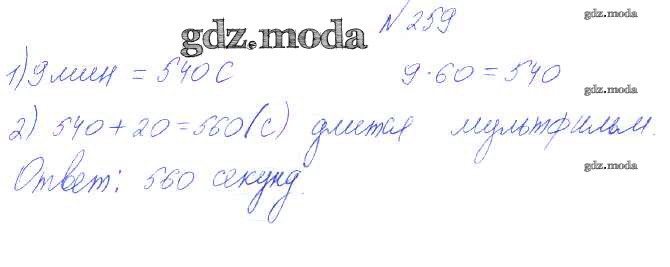 № 259
gdz.moda
gdz.moda
1) 9 мин = 540 с 9·60 = 540
gdz.moda
2) 540 + 20 = 560 (с) длится мультфильм.
gdz.moda
Ответ: 560 секунд.
gdz.moda